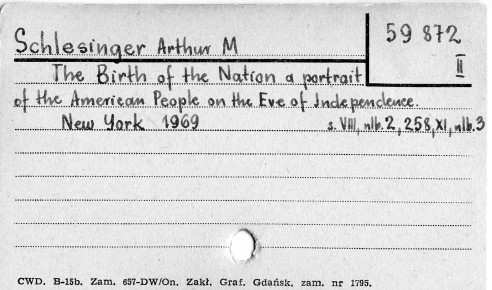 Schlesinger Arthur M
59 872
II
The Birth of the Nation a portrait
of the American People on the Eve of Independence.
New York 1969 s. VIII, nlb. 2, 258, XI, nlb. 3
CWD. B-15b. Zam. 657-DW/On. Zakł. Graf. Gdańsk, zam. nr 1795.